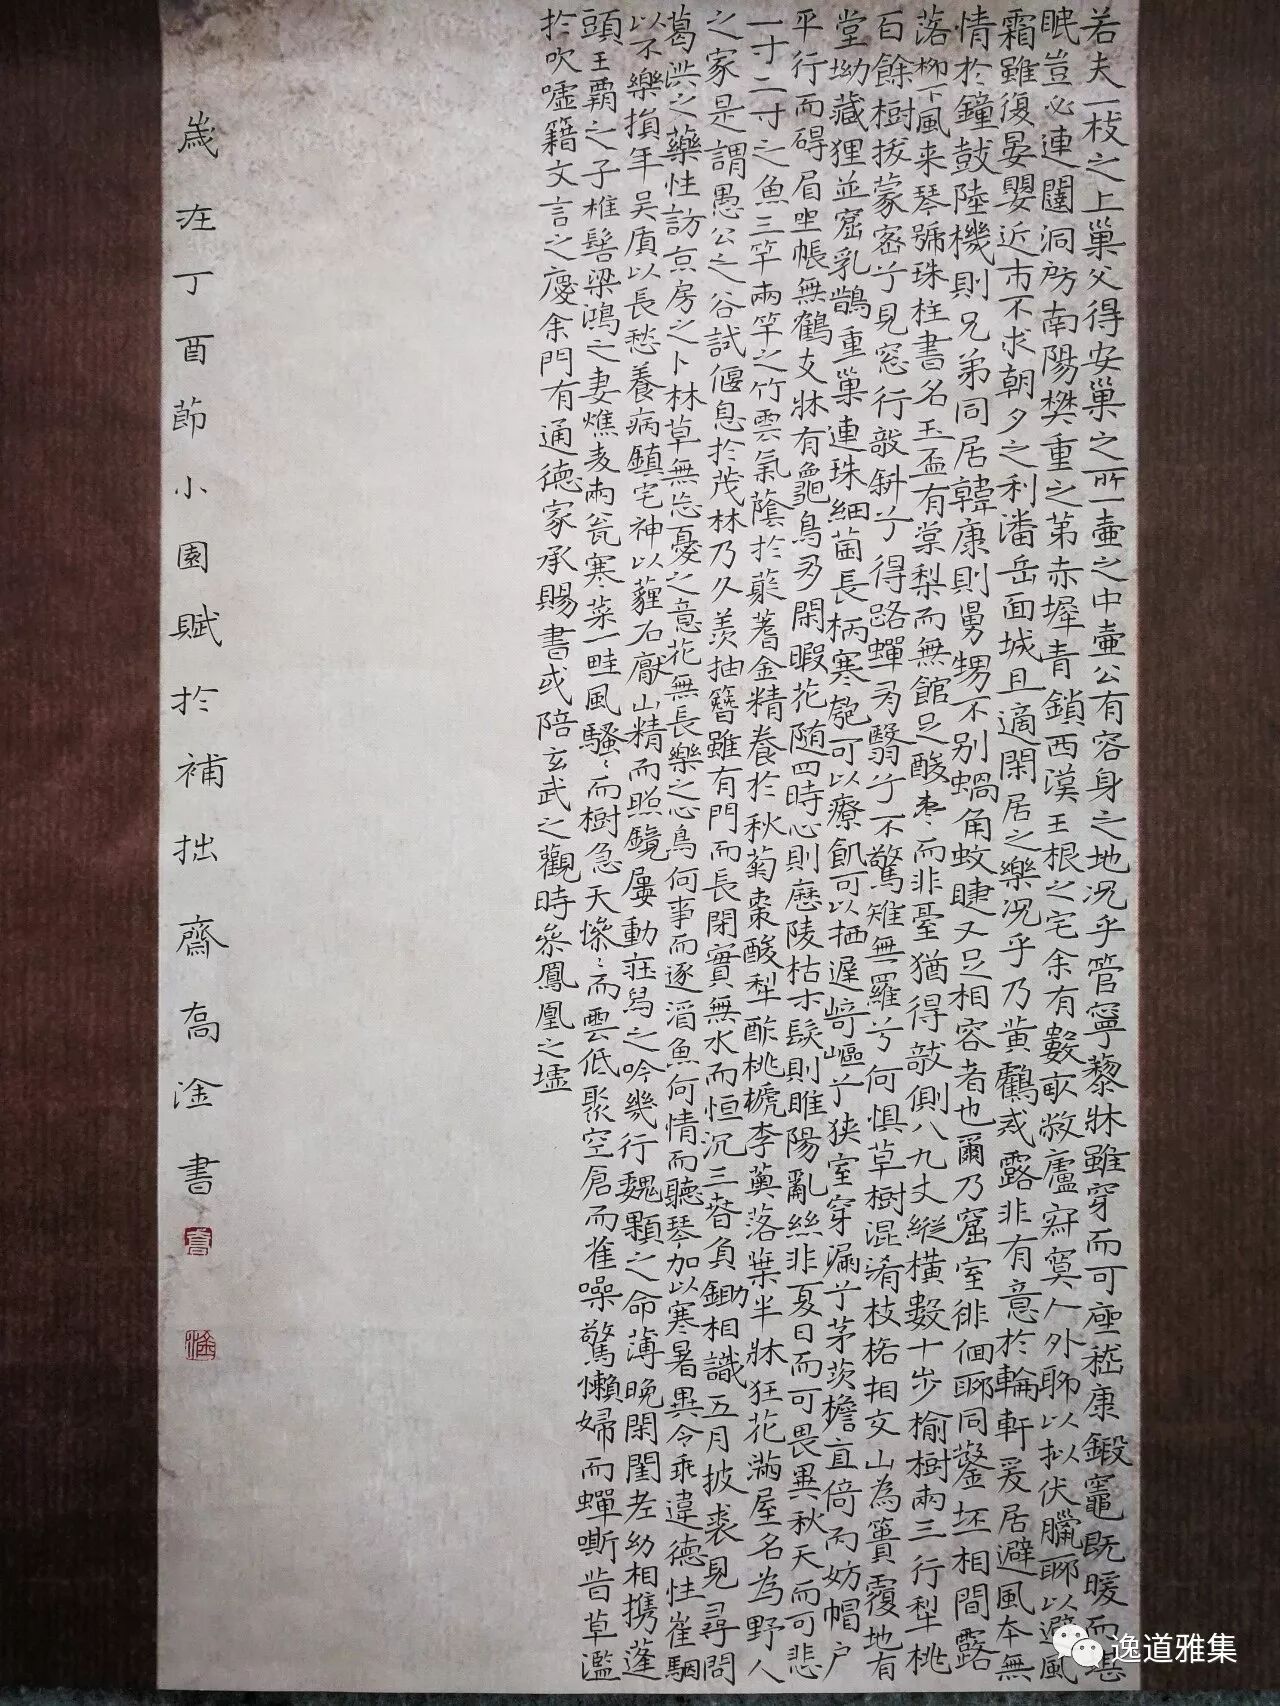 若夫一枝之上巢父得安巢之所一壷之中壷公有容身之地况乎管寧藜牀雖穿而可座嵇康鍛竈既暖而堪
眠豈必連闥洞房南陽樊重之第赤墀青鎖西漢王根之宅余有數畝敝廬寂寞人外聊以擬伏臘聊以避風
霜雖復晏嬰近市不求朝夕之利潘岳面城且適閑居之樂况乎乃黄鶴戒露非有意於輪軒爰居避風本無
情於鐘鼓陸機則兄弟同居韓康則舅甥不别蝸角蚊睫又足相容者也爾乃窟室徘徊聊同鑿坯相間露
落柳下風来琴號珠柱書名玉盃有棠梨而無館足酸棗而非臺猶得敧側八九丈縱横數十步榆樹兩三行犁桃
百餘樹拔蒙密兮見窓行敧斜兮得路蟬有翳兮不驚雉無羅兮何惧草樹混淆枝格相交山為簣覆地有
堂坳藏狸並窟乳鵲重巢連珠細菌長柄寒匏可以療飢可以栖遲﨑嶇兮狭室穿漏兮茅茨檐直倚而妨帽户
平行而碍眉坐帳無鶴支牀有龜鳥多閑暇花随四時心則歷陵枯木髮則睢陽亂絲非夏日而可畏異秋天而可悲
一寸二寸之魚三竿兩竿之竹雲氣蔭於叢蓍金精養於秋菊棗酸犁酢桃榹李薁落葉半牀狂花滿屋名為野人
之家是謂愚公之谷試偃息於茂林乃久羡抽簪雖有門而長閉實無水而恒沉三春負鋤相識五月披裘見尋問
葛洪之藥性訪京房之卜林草無忘憂之意花無長樂之心鳥何事而逐酒魚何情而聽琴加以寒暑異令乖違德性崔駰
以不樂損年吴質以長愁養病鎮宅神以薶石厭山精而照鏡屢動莊舄之吟幾行魏顆之命薄晚閑閨老幼相携蓬
頭王霸之子椎髻梁鴻之妻燋麦兩瓮寒菜一畦風騷〻而樹急天慘〻而雲低聚空倉而雀噪驚懶婦而蟬嘶昔草濫
於吹噓籍文言之慶余門有通德家承賜書或陪玄武之觀時叅鳳凰之墟
歲在丁酉節小園賦於補拙齋高淦書
淦
逸道雅集